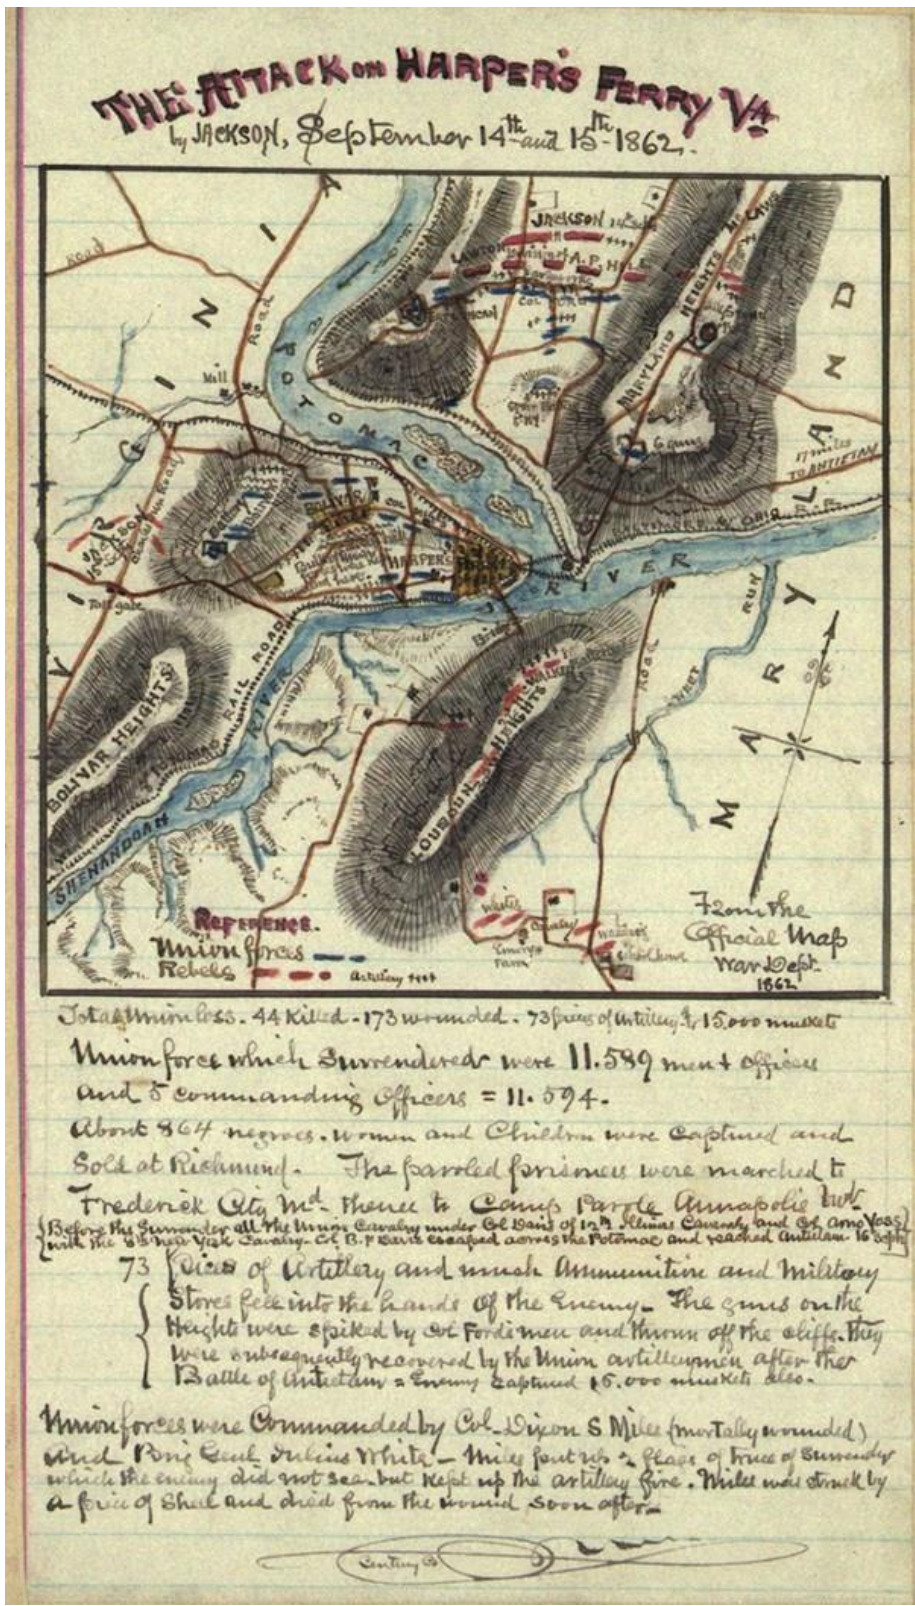 THE ATTACK ON HARPER'S FERRY VA
by JACKSON, September 14th and 15th 1862.
VIRGINIA
Road
Road
Mill
POTOMAC
JACKSON
LAWTON
A.P. HILL
COL FORD
McLAWS
MARYLAND HEIGHTS
6 guns
17 miles
TO ANTIETAM
BALTIMORE & OHIO R.R.
MARYLAND
RIVER
JACKSON
Road
BOLIVAR
HARPER'S
Tollgate
Bridge
BOLIVAR HEIGHTS
RAIL ROAD
SHENANDOAH
RIVER
WALKER
LOUDOUN HEIGHTS
ROAD
RUN
REFERENCE.
Union forces
Rebels
Artillery
Cavalry
From the
Official Map
War Dept.
1862
Total Union loss. 44 killed - 173 wounded - 73 pieces of Artillery & 15.000 muskets
Union force which Surrendered were 11.589 men & officers
and 5 commanding Officers = 11.594.
About 864 negroes. women and Children were captured and
Sold at Richmond. The paroled prisoners were marched to
Frederick City Md. thence to Camp Parole Annapolis
Before the Surrender all the Union Cavalry under Col Davis of 12th Illinois Cavalry and Col. Arno Voss
with the 8th New York Cavalry. Col B. F Davis escaped across the Potomac and reached Antietam 16 Sept
73 pieces of Artillery and much Ammunition and Military
Stores fell into the hands of the Enemy - The guns on the
Heights were spiked by Col Fords men and thrown off the cliffs. They
were subsequently recovered by the Union artillerymen after the
Battle of Antietam = Enemy captured 15.000 muskets also.
Union forces were Commanded by Col. Dixon S Miles (mortally wounded)
and Brig Genl Julius White - Miles put up a flag of truce of surrender
which the enemy did not see. but kept up the artillery fire. Miles was struck by
a piece of Shell and died from the wound soon after-
Century Co